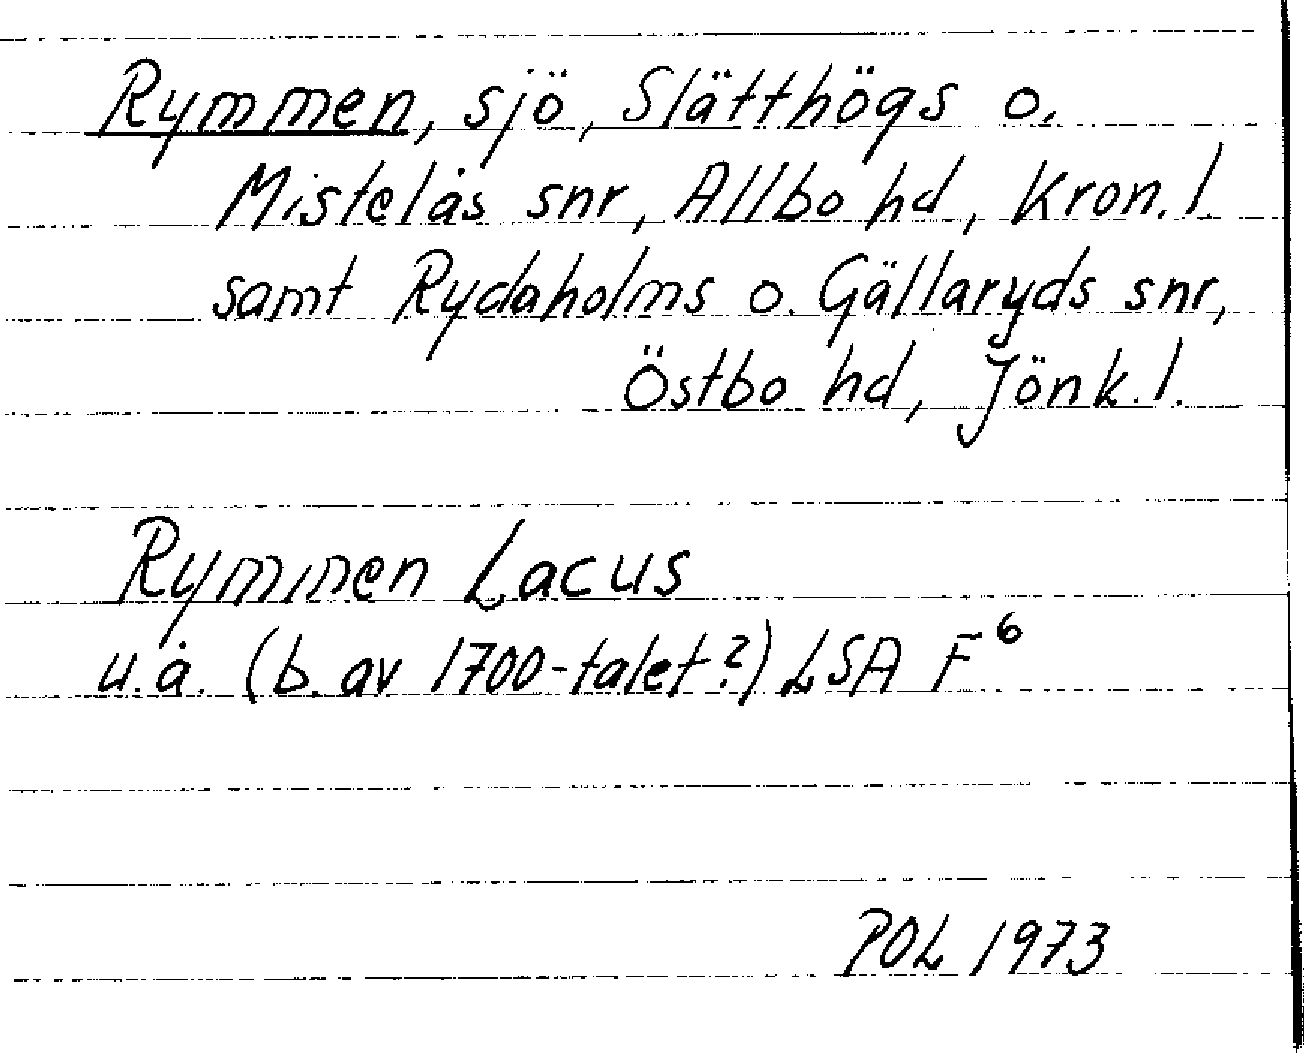 Rymmen, sjö, Slätthögs o.
Mistelås snr, Allbo hd, Kron. l.
samt Rydaholms o. Gällaryds snr,
Östbo hd, Jönk. l.
Rymmen Lacus
u.å. (b. av 1700-talet?) LSA F⁶
POL 1973